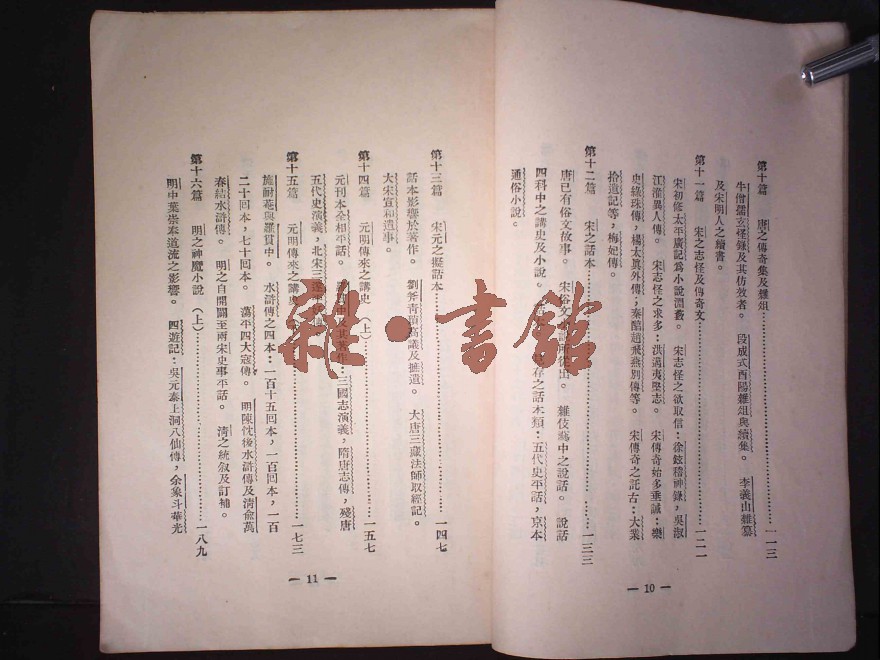 第十篇　唐之傳奇集及雜俎……一一三
牛僧孺玄怪錄及其仿效者。　段成式酉陽雜俎與續集。　李義山雜纂
及宋明人之續書。
第十一篇　宋之志怪及傳奇文……一二一
宋初修太平廣記爲小說淵藪。　宋志怪之欲取信：徐鉉稽神錄，吳淑
江淮異人傳。　宋志怪之求多：洪邁夷堅志。　宋傳奇始多垂誡：樂
史綠珠傳，楊太眞外傳；秦醇趙飛燕別傳等。　宋傳奇之託古：大業
拾遺記等，梅妃傳。
第十二篇　宋之話本……一三三
唐已有俗文故事。　宋俗文　出。　雜伎藝中之說話。　說話
四科中之講史及小說。　存之話本類：五代史平話，京本
通俗小說。
— 10 —
第十三篇　宋元之擬話本……一四七
話本影響於著作。　劉斧靑瑣高議及摭遺。　大唐三藏法師取經記。
大宋宣和遺事。
第十四篇　元明傳來之講史（上）……一五七
元刊本全相平話。　及其著作：三國志演義，隋唐志傳，殘唐
五代史演義，北宋三
第十五篇　元明傳來之講史……一七三
施耐菴與羅貫中。　水滸傳之四本：一百十五回本，一百回本，一百
二十回本，七十回本。　蕩平四大寇傳。　明陳忱後水滸傳及淸兪萬
春結水滸傳。　明之自開闢至兩宋史事平話。　淸之統敍及訂補。
第十六篇　明之神魔小說（上）……一八九
明中葉崇奉道流之影響。　四遊記：吳元泰上洞八仙傳，余象斗華光
— 11 —
雜·書館